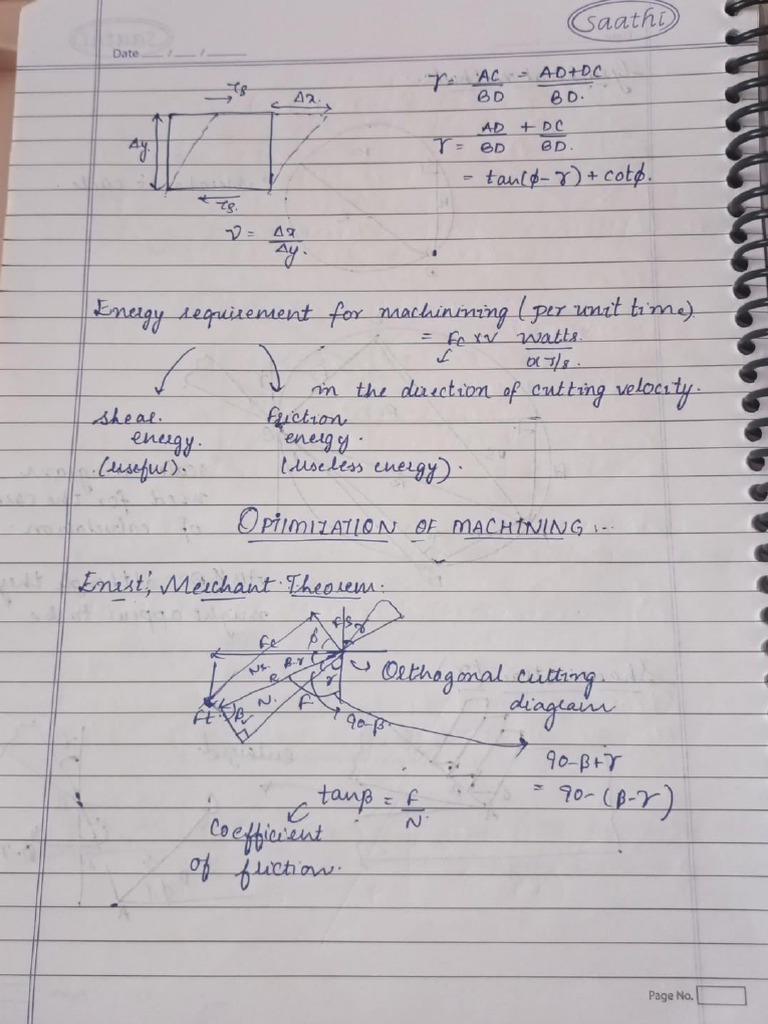 saathi
Date __/__/__
τs Δx.
Δy.
τs.
ν = Δx/Δy.
r = AC/BD = AD+DC/BD.
r = AD/BD + DC/BD.
= tan(ϕ-r) + cotϕ.
Energy requirement for machinining (per unit time)
= Fc x v watts.
or J/s.
in the direction of cutting velocity.
shear friction
energy. energy.
(useful). (useless energy).
OPTIMIZATION OF MACHINING :-
Enrist, Merchant Theorem:
Fc β r
β-r
R
N. F r
Ft β 90-β.
Orthogonal cutting
diagram
90-β+r
= 90-(β-r)
tanβ = F/N.
Coefficient
of friction.
Page No.